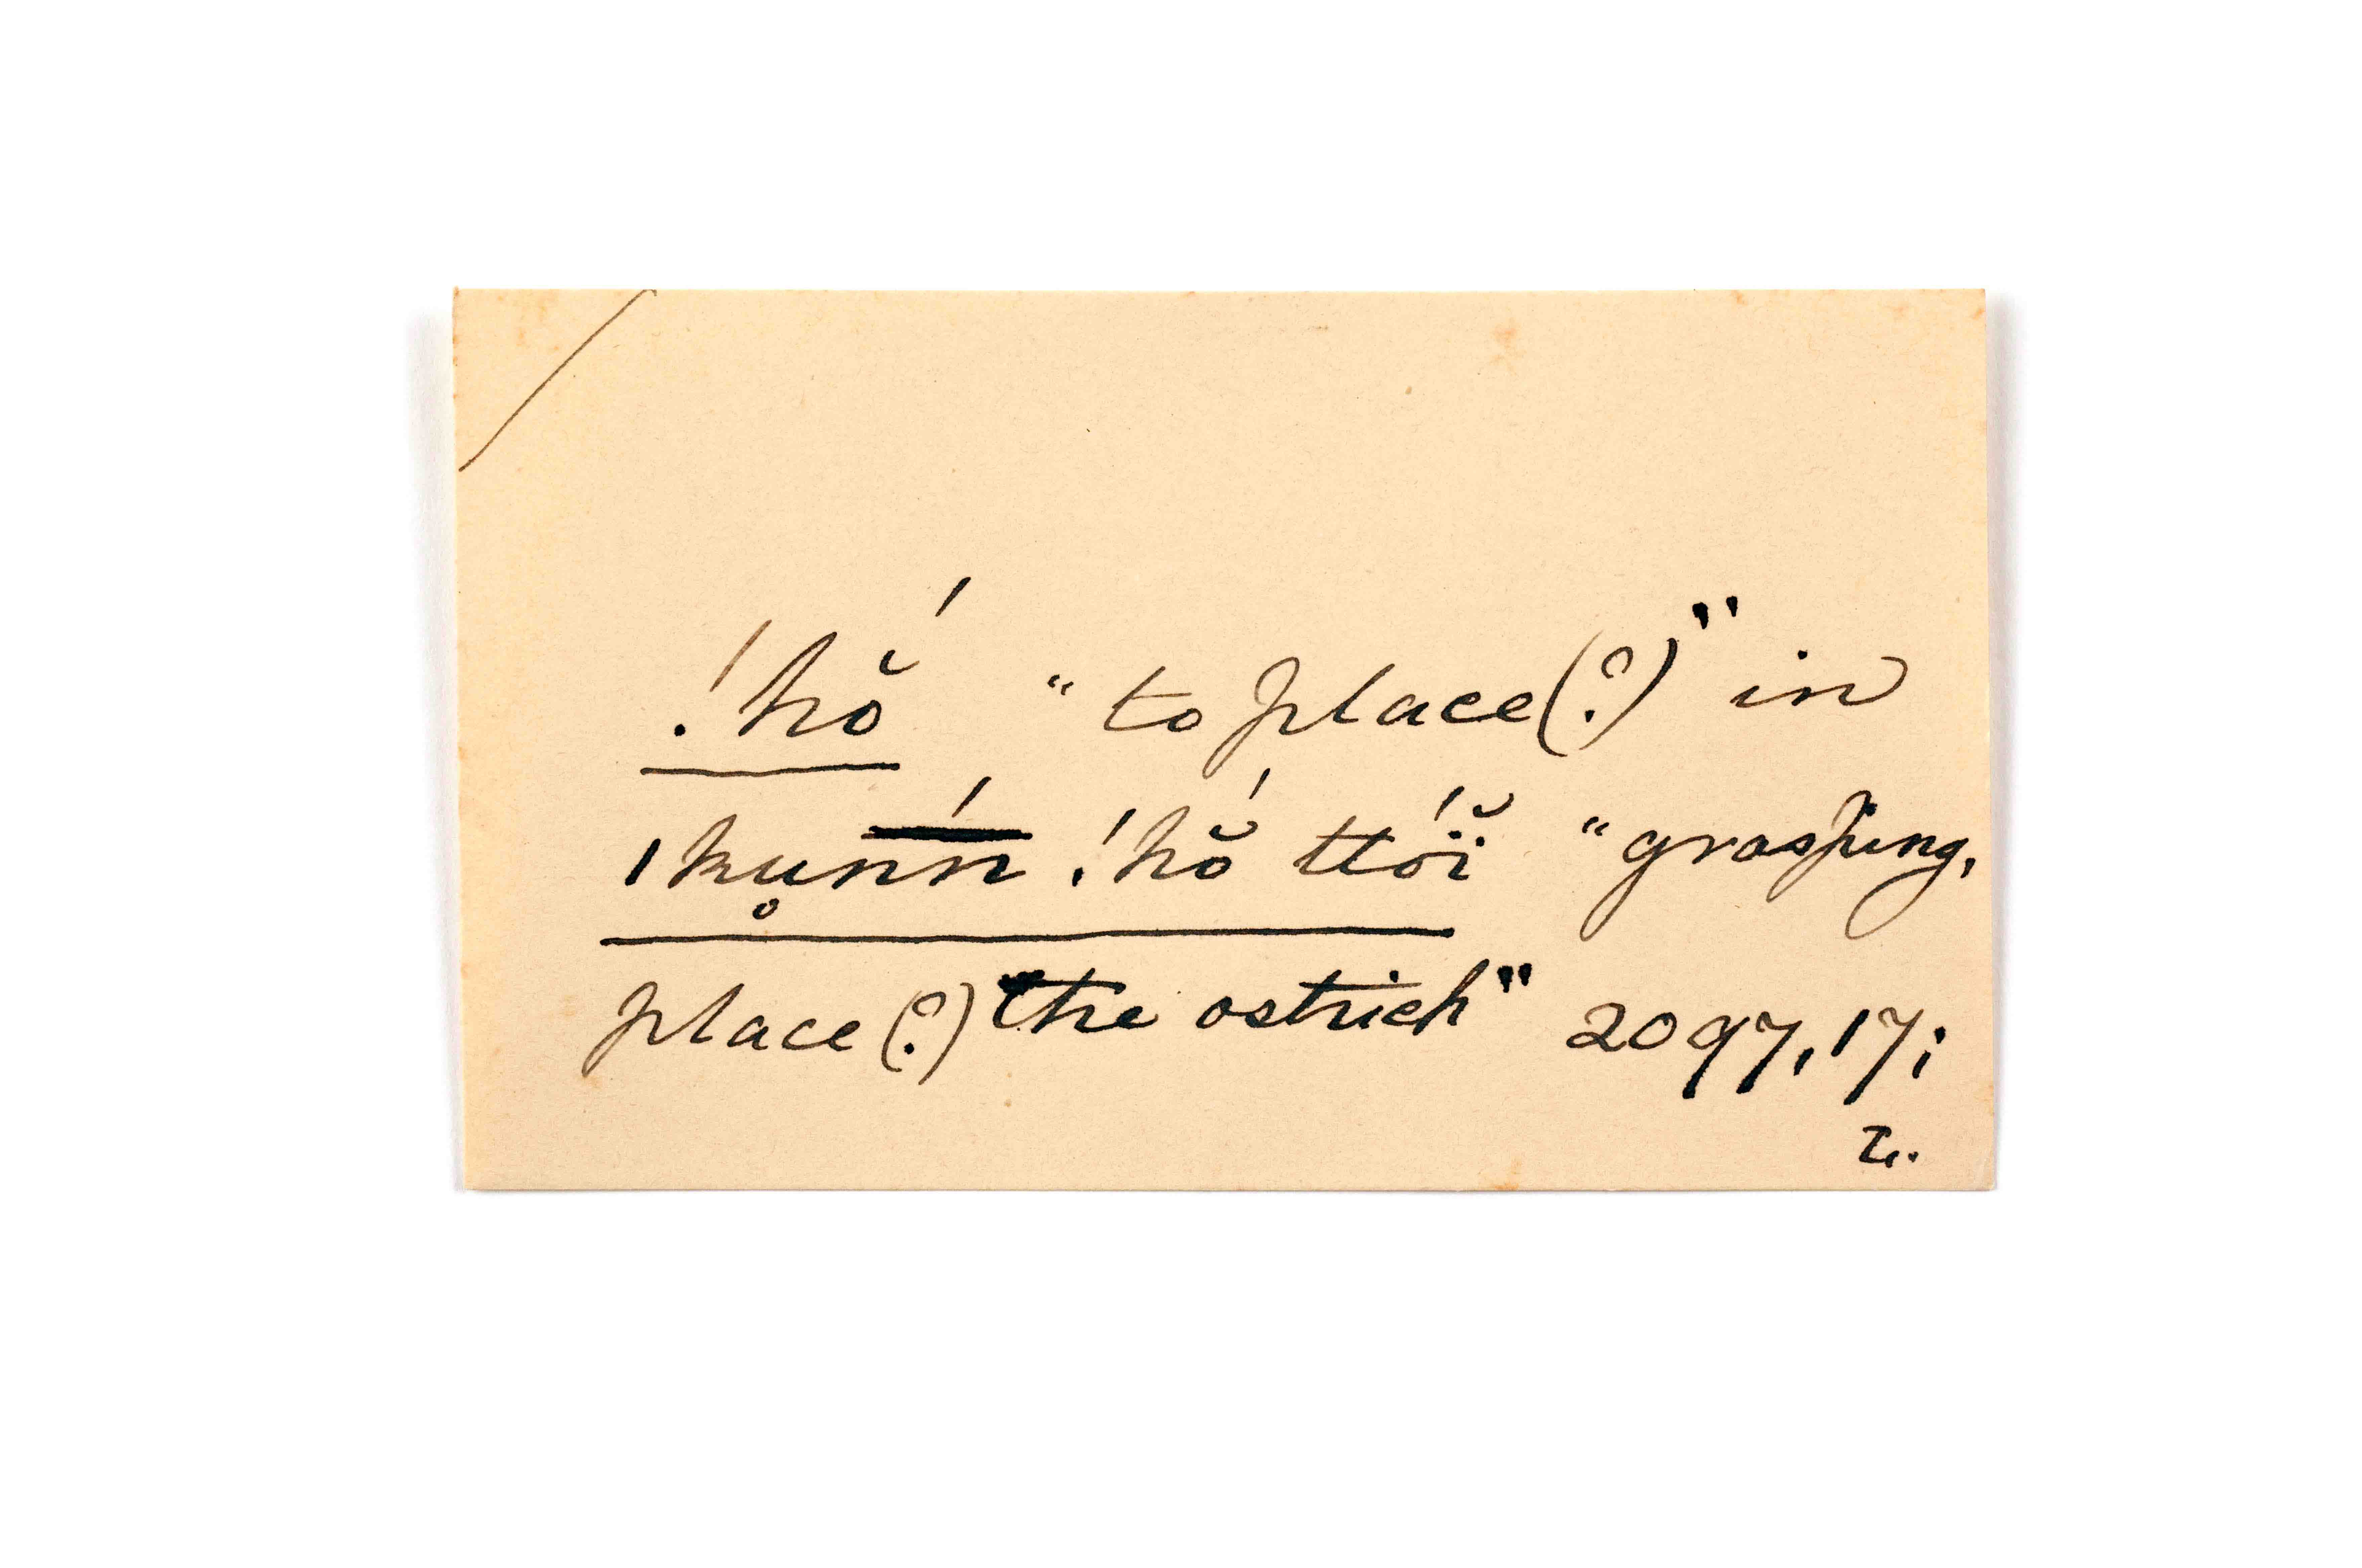 !hŏ́ "to place(?)" in
ǀku̥nń !hŏ́ ttóï̆ "grasping,
place(?) the ostrich" 2097,17;
Z.